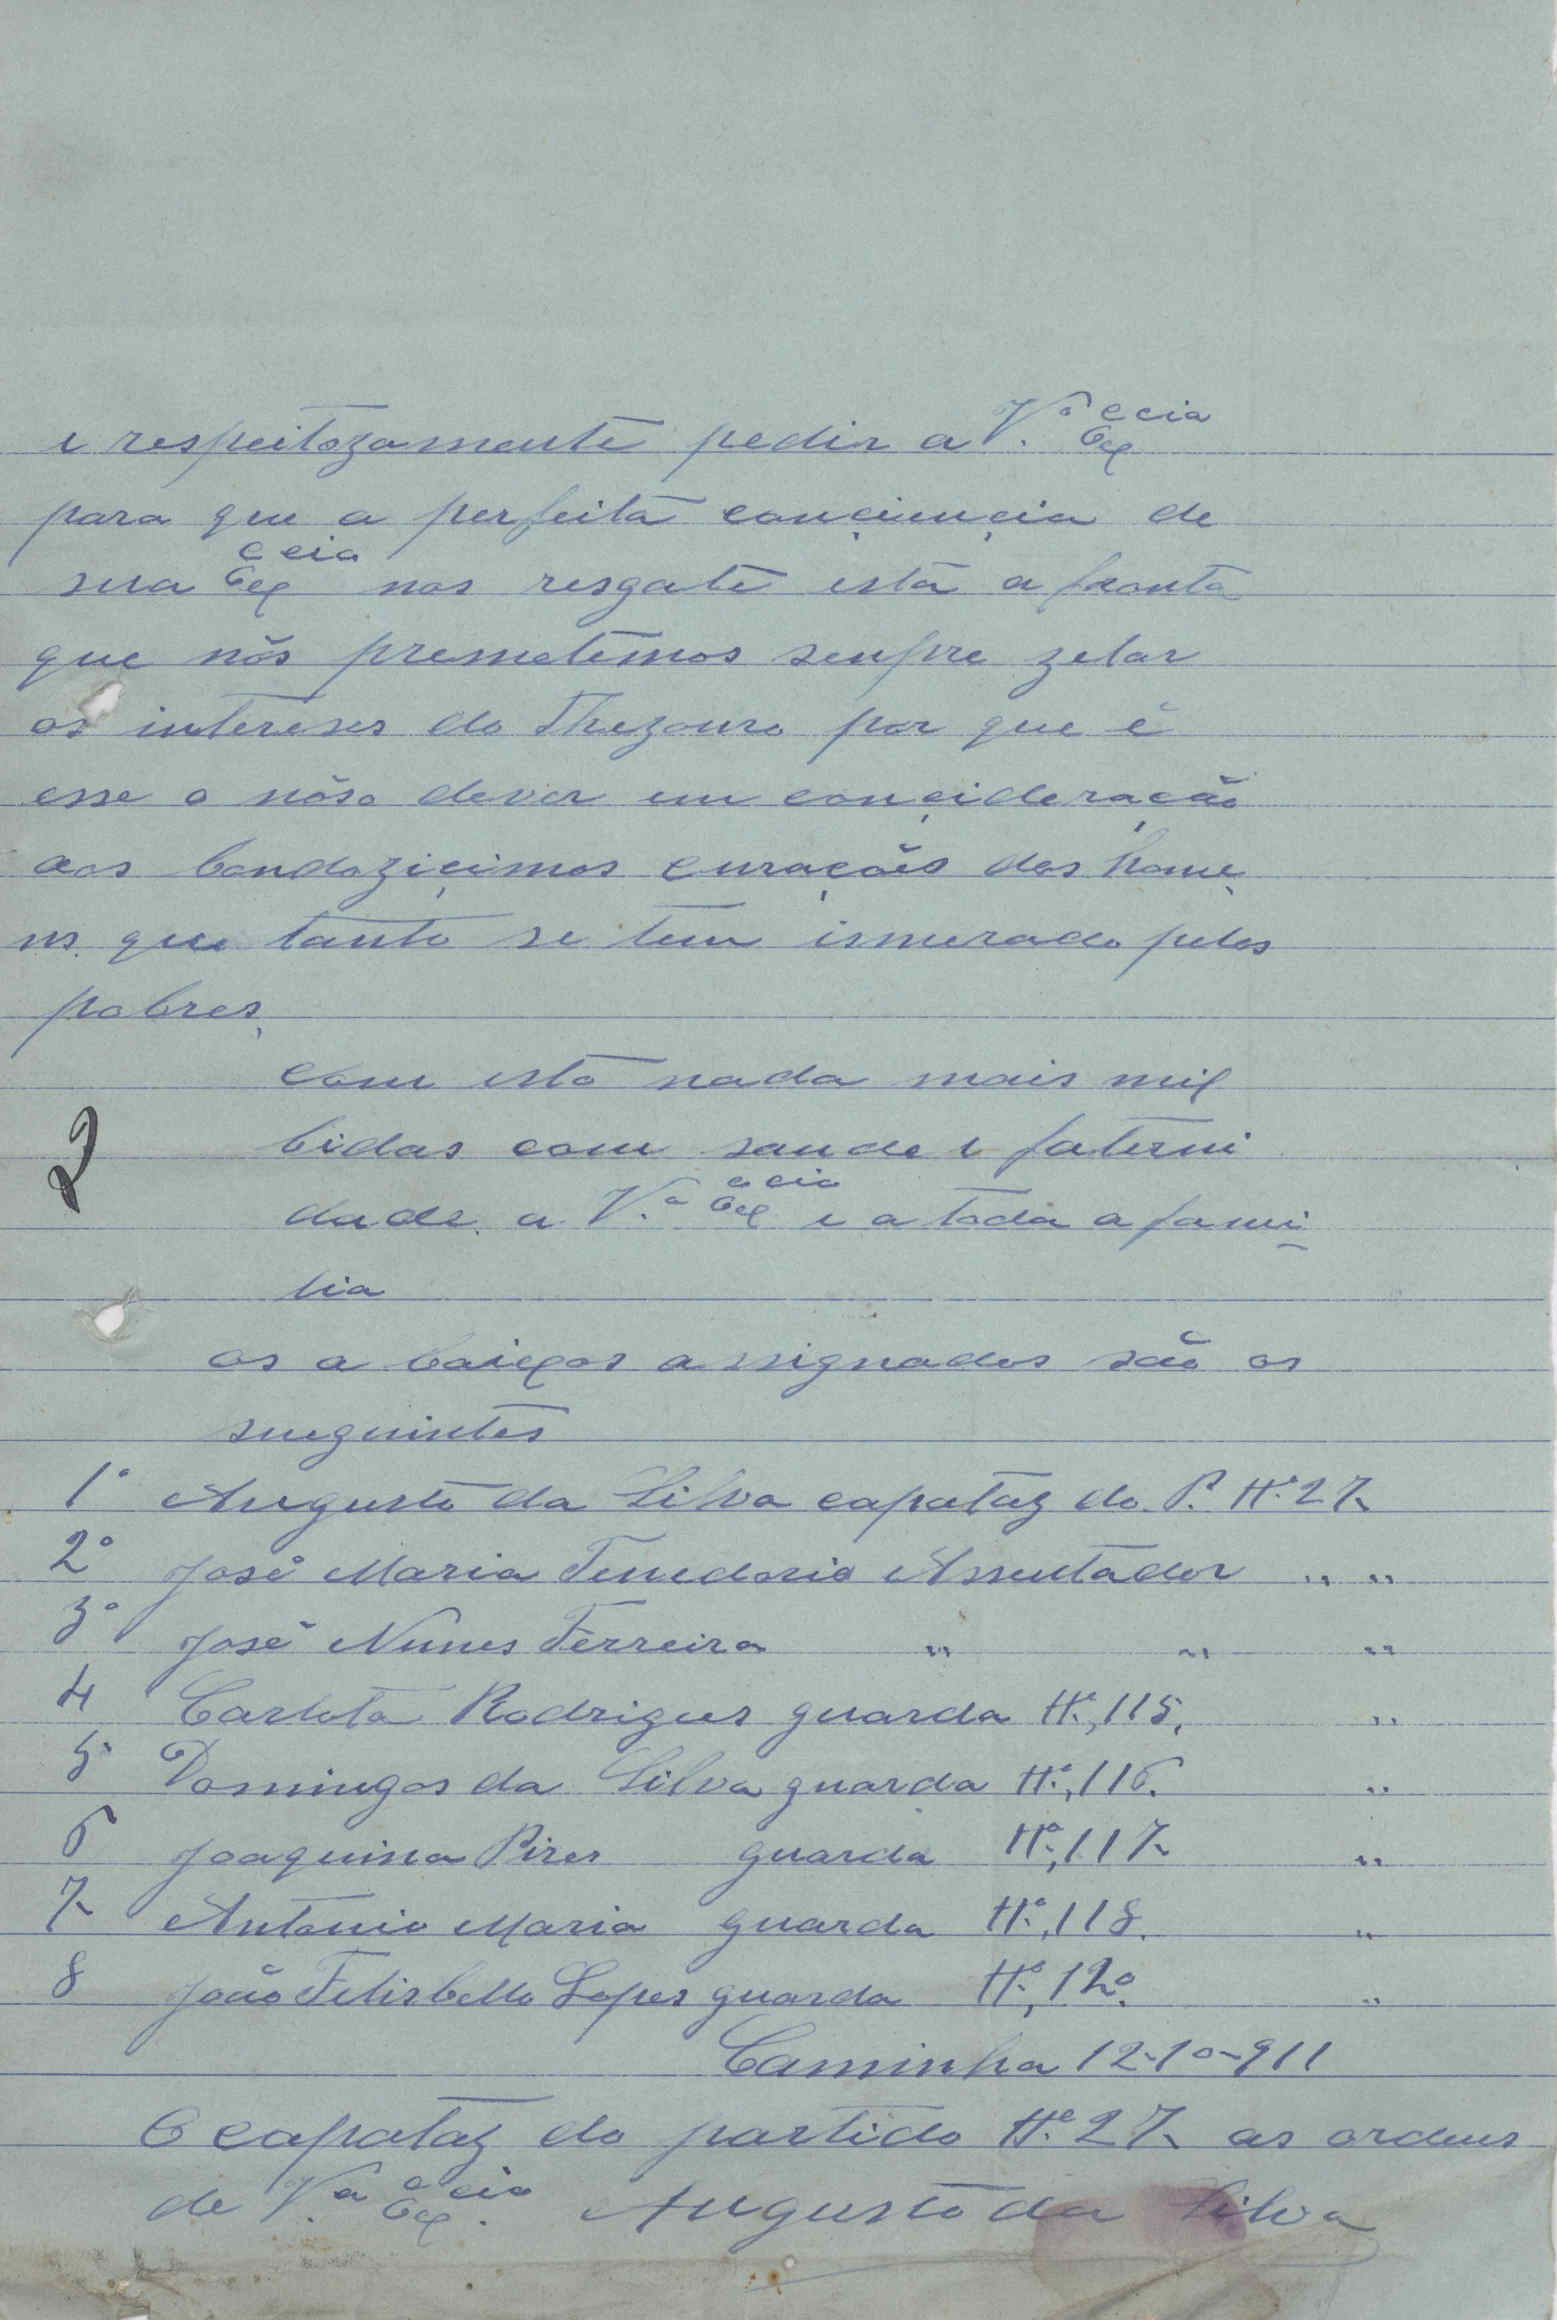 e respeitozamente pedir a V.ª Exccia
para que a perfeita conçiençia de
sua Exccia nos resgate esta afronta
que nós premetemos senpre zelar
os intereses do Thezouro por que é
esse o nóso dever em conçideração
aos bondoziçimos curaçães dos home
ns. que tanto se tem ismerado pelos
pobres,
com isto nada mais mil
bidas com saude e faterni
dade. a V.ª Exccia e a toda a fami
lia
2
os a baixos assignados são os
sueguintes
1º Augusto da Silva capataz do P. Nº 27
2º José Maria Tenedorio Assentador " "
3º José Nunes Ferreira " " "
4 Carlota Rodrigues guarda Nº, 115, "
5 Domingos da Silva guarda Nº, 116. "
6 Joaquina Pires guarda Nº, 117 "
7 Antonio Maria guarda Nº, 118. "
8 João Felisbello Lopes guarda Nº, 120. "
Caminha 12-10-911
O capataz do partido Nº 27 as ordens
de V.ª Exccia. Augusto da Silva